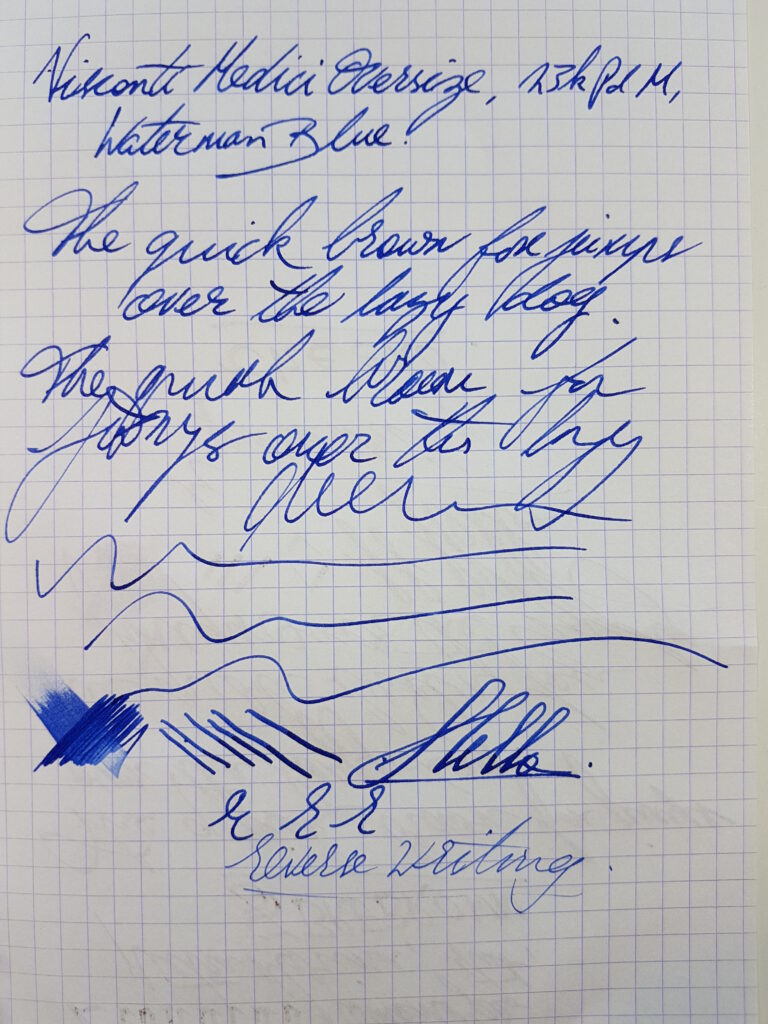 Visconti Medici Oversize, 23k Pd M,
Waterman Blue.
The quick brown fox jumps
over the lazy dog.
The quick brown fox
jumps over the lazy
Hello.
Reverse writing.